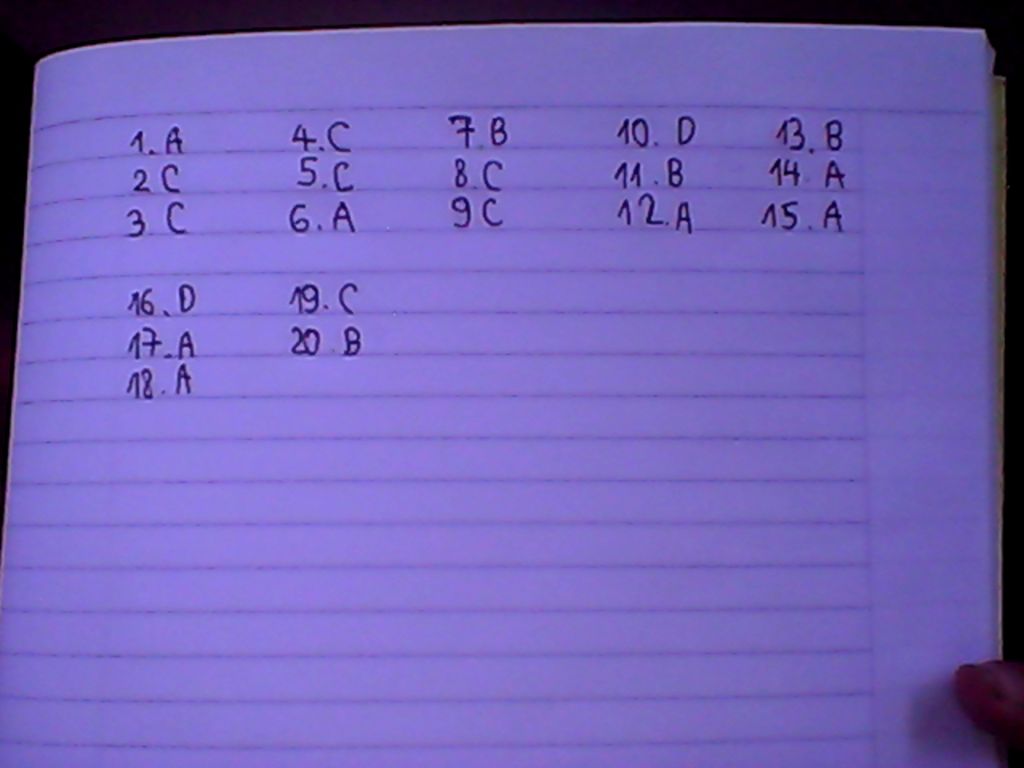 1. A 4. C 7. B 10. D 13. B
2 C 5. C 8. C 11. B 14. A
3 C 6. A 9 C 12. A 15. A
16. D 19. C
17. A 20. B
18. A